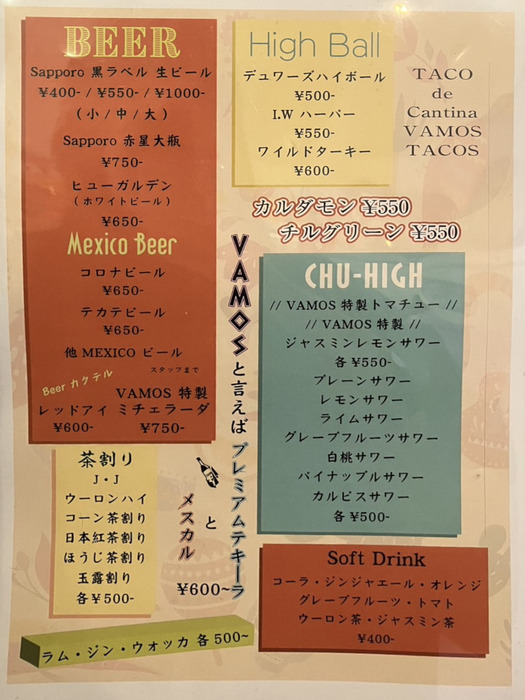 BEER
Sapporo 黒ラベル 生ビール
¥400- / ¥550- / ¥1000-
(小/中/大)
Sapporo 赤星大瓶
¥750-
ヒューガルデン
(ホワイトビール)
¥650-
Mexico Beer
コロナビール
¥650-
テカテビール
¥650-
他 MEXICO ビール
スタッフまで
Beer カクテル
VAMOS 特製
レッドアイ ミチェラーダ
¥600- ¥750-
High Ball
デュワーズハイボール
¥500-
I.W ハーパー
¥550-
ワイルドターキー
¥600-
TACO
de
Cantina
VAMOS
TACOS
カルダモン ¥550
チルグリーン ¥550
VAMOSと言えば プレミアムテキーラ
と
メスカル
¥600~
CHU-HIGH
// VAMOS 特製トマチュー //
// VAMOS 特製 //
ジャスミンレモンサワー
各¥550-
プレーンサワー
レモンサワー
ライムサワー
グレープフルーツサワー
白桃サワー
パイナップルサワー
カルピスサワー
各¥500-
茶割り
J・J
ウーロンハイ
コーン茶割り
日本紅茶割り
ほうじ茶割り
玉露割り
各¥500-
Soft Drink
コーラ・ジンジャエール・オレンジ
グレープフルーツ・トマト
ウーロン茶・ジャスミン茶
¥400-
ラム・ジン・ウォッカ 各500~